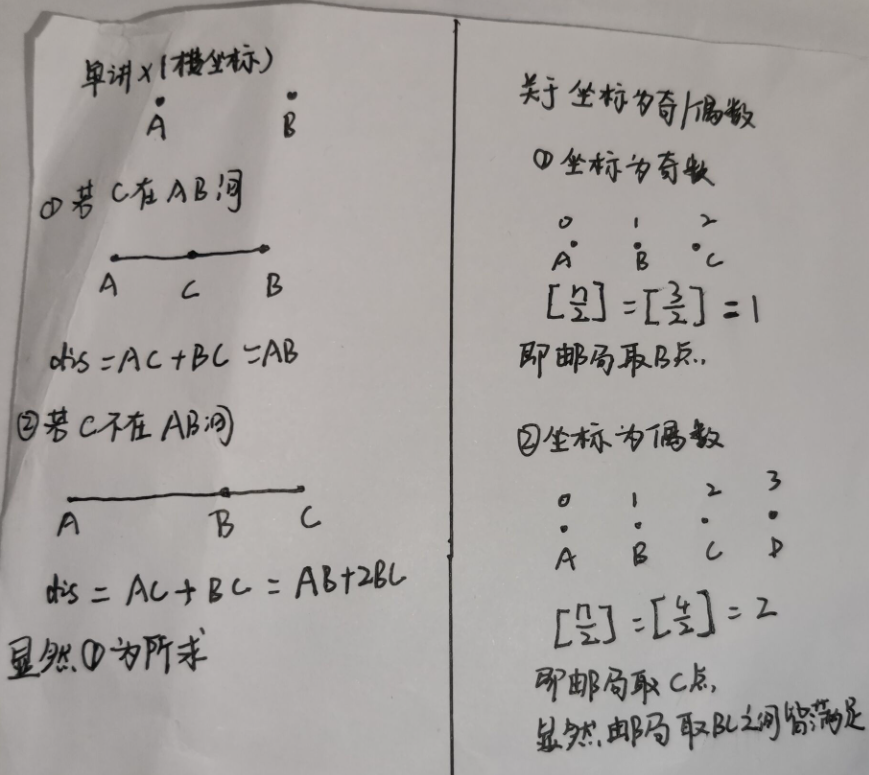 单讲x(横坐标)
A B
①若C在AB间
A C B
dis=AC+BC=AB
②若C不在AB间
A B C
dis=AC+BC=AB+2BC
显然①为所求
关于坐标为奇/偶数
①坐标为奇数
0 1 2
A B C
[n/2]=[3/2]=1
即邮局取B点.
②坐标为偶数
0 1 2 3
A B C D
[n/2]=[4/2]=2
即邮局取C点,
显然,邮局取BC之间皆满足